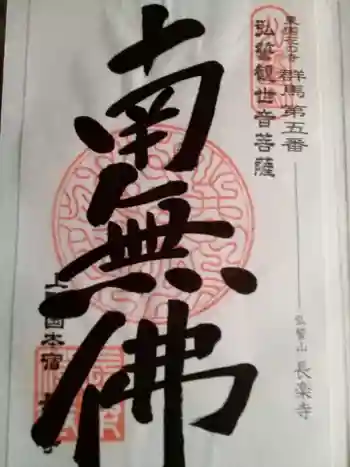 東国花の寺 群馬第五番
弘誓観世音菩薩
弘誓山 長楽寺
南無佛
本宿